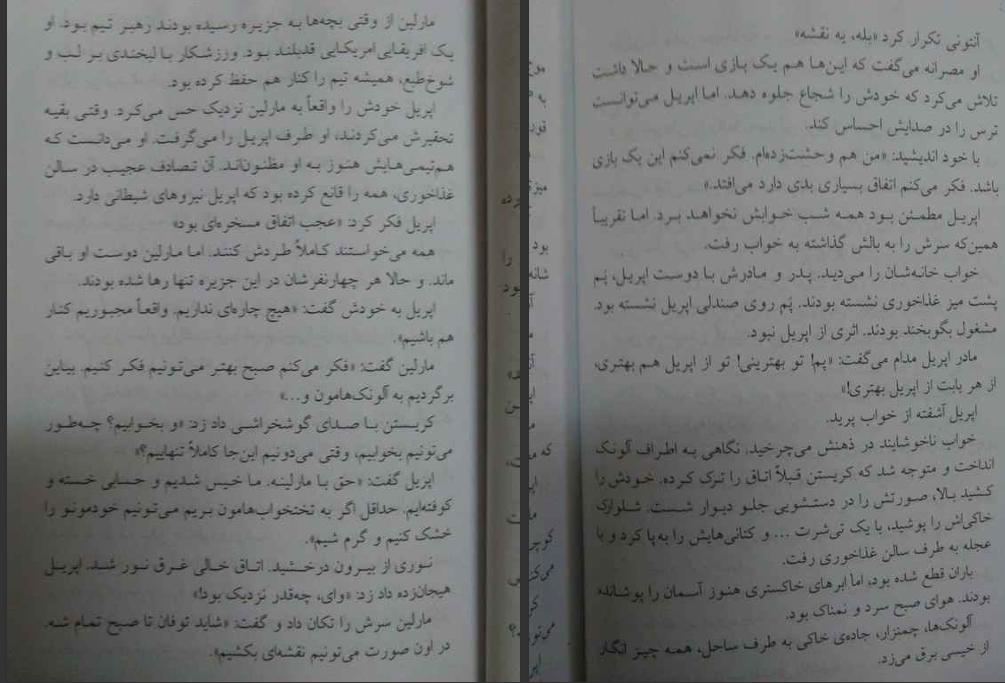 مارلین از وقتی بچه‌ها به جزیره رسیده بودند رهبر تیم بود. او
یک افریقایی امریکایی قدبلند بود. ورزشکار با لبخندی بر لب و
شوخ‌طبع، همیشه تیم را کنار هم حفظ کرده بود.
اپریل خودش را واقعاً به مارلین نزدیک حس می‌کرد. وقتی بقیه
تحقیرش می‌کردند، او طرف اپریل را می‌گرفت. او می‌دانست که
هم‌تیمی‌هایش هنوز به او مظنون‌اند. آن تصادف عجیب در سالن
غذاخوری، همه را قانع کرده بود که اپریل نیروهای شیطانی دارد.
اپریل فکر کرد: «عجب اتفاق مسخره‌ای بود»
همه می‌خواستند کاملاً طردش کنند. اما مارلین دوست او باقی
ماند. و حالا هر چهارنفرشان در این جزیره تنها رها شده بودند.
اپریل به خودش گفت: «هیچ چاره‌ای نداریم. واقعاً مجبوریم کنار
هم باشیم».
مارلین گفت: «فکر می‌کنم صبح بهتر می‌تونیم فکر کنیم. بیاین
برگردیم به آلونک‌هامون و...»
کریستن با صدای گوشخراشی داد زد: «و بخوابیم؟ چه‌طور
می‌تونیم بخوابیم، وقتی می‌دونیم این‌جا کاملاً تنهاییم؟»
اپریل گفت: «حق با مارلینه. ما خیس شدیم و حسابی خسته و
کوفته‌ایم. حداقل اگر به تختخواب‌هامون بریم می‌تونیم خودمونو را
خشک کنیم و گرم شیم».
نوری از بیرون درخشید. اتاق خالی غرق نور شد. اپریل
هیجان‌زده داد زد: «وای، چه‌قدر نزدیک بود!»
مارلین سرش را تکان داد و گفت: «شاید توفان تا صبح تمام شه.
در اون صورت می‌تونیم نقشه‌ای بکشیم».
آنتونی تکرار کرد «بله، یه نقشه»
او مصرانه می‌گفت که این‌ها هم یک بازی است و حالا داشت
تلاش می‌کرد که خودش را شجاع جلوه دهد. اما اپریل می‌توانست
ترس را در صدایش احساس کند.
با خود اندیشید: «من هم وحشت‌زده‌ام. فکر نمی‌کنم این یک بازی
باشد. فکر می‌کنم اتفاق بسیاری بدی دارد می‌افتد.»
اپریل مطمئن بود همه شب خوابش نخواهد برد. اما تقریباً
همین‌که سرش را به بالش گذاشته به خواب رفت.
خواب خانه‌شان را می‌دید. پدر و مادرش با دوست اپریل، پم
پشت میز غذاخوری نشسته بودند. پم روی صندلی اپریل نشسته بود.
مشغول بگوبخند بودند. اثری از اپریل نبود.
مادر اپریل مدام می‌گفت: «پم! تو بهترینی! تو از اپریل هم بهتری،
از هر بابت از اپریل بهتری!»
اپریل آشفته از خواب پرید.
خواب ناخوشایند در ذهنش می‌چرخید. نگاهی به اطراف آلونک
انداخت و متوجه شد که کریستن قبلاً اتاق را ترک کرده. خودش را
کشید بالا، صورتش را در دستشویی جلو دیوار شست. شلوارک
خاکی‌اش را پوشید، با یک تی‌شرت ... و کتانی‌هایش را به‌پا کرد و با
عجله به طرف سالن غذاخوری رفت.
باران قطع شده بود، اما ابرهای خاکستری هنوز آسمان را پوشانده
بودند. هوای صبح سرد و نمناک بود.
آلونک‌ها، چمنزار، جاده‌ی خاکی به طرف ساحل، همه چیز انگار
از خیسی برق می‌زد.